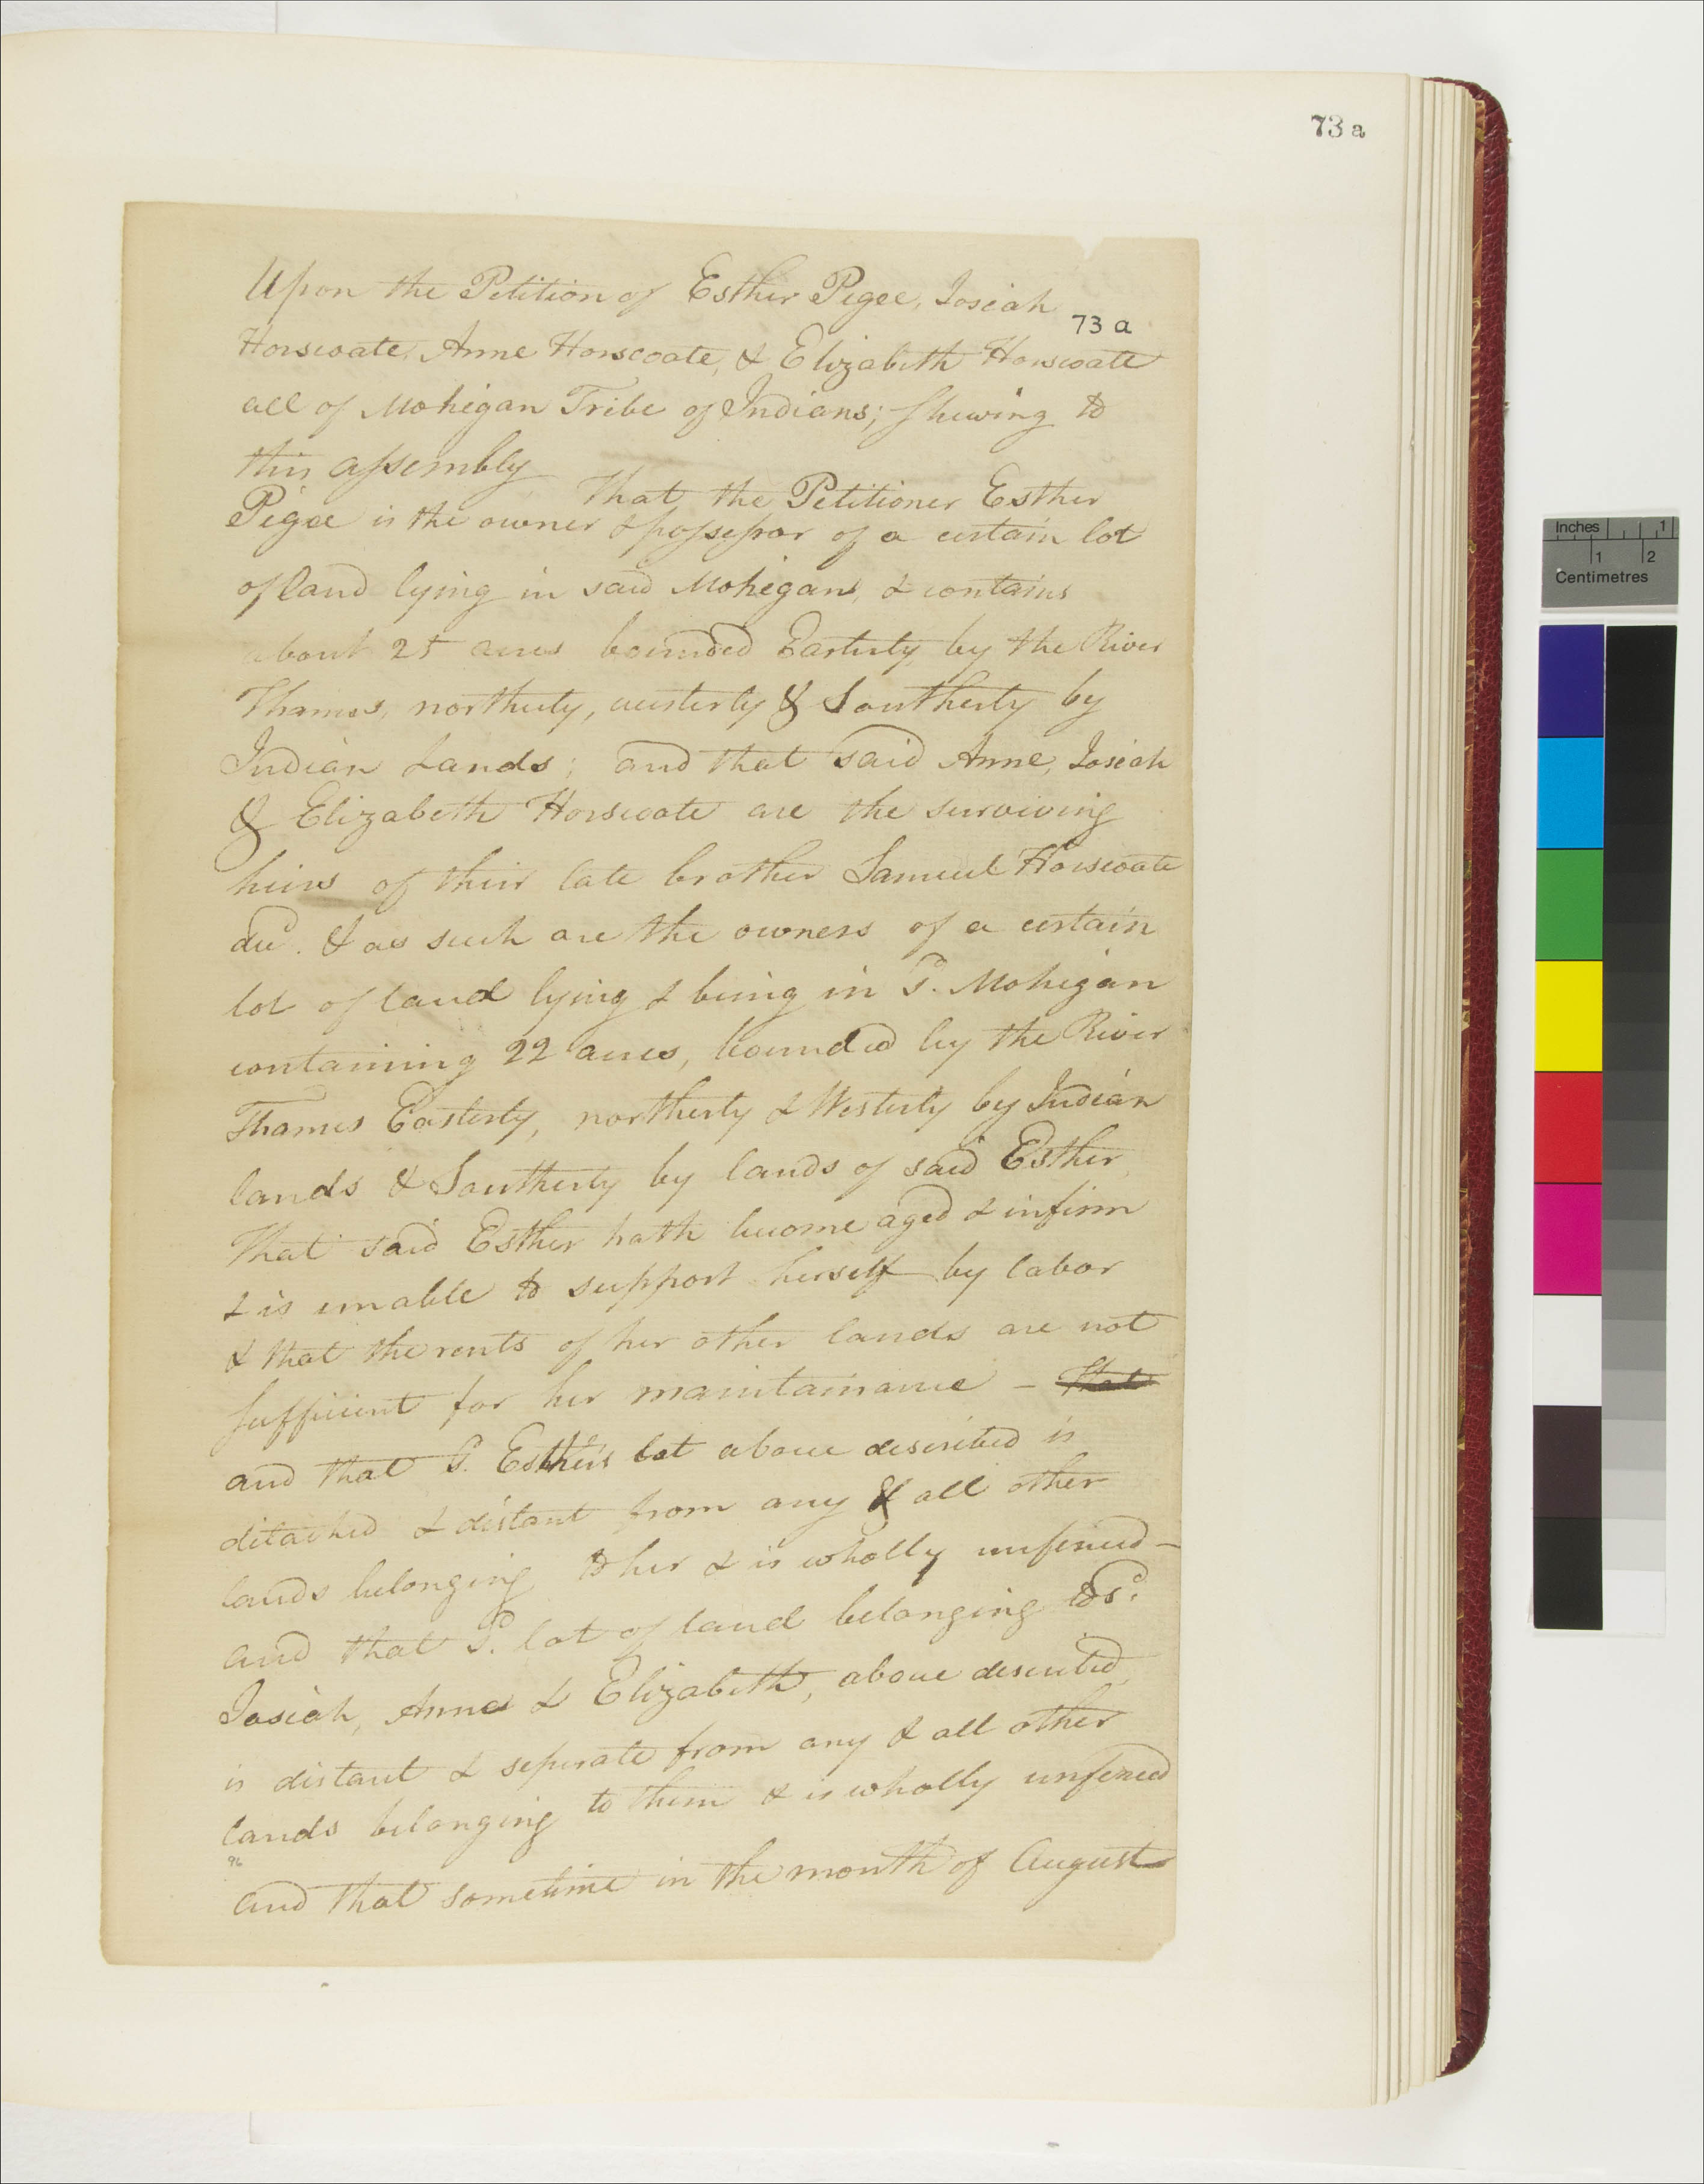 73 a
Upon the Petition of Esther Pegee, Josiah
73 a
Horscoate, Anne Horscoate, & Elizabeth Horscoate
all of Mohegan Tribe of Indians; shewing to
this assembly That the Petitioner Esther
Pegee is the owner & possessor of a certain lot
of land lying in said Mohegan, & contains
about 25 acres bounded Easterly by the River
Thames, northerly, westerly & Southerly by
Indian Lands; and that said Anne, Josiah
& Elizabeth Horscoate are the surviving
heirs of their late brother Samuel Horscoate
decd. & as such are the owners of a certain
lot of land lying & being in Sd. Mohegan
containing 22 acres, bounded by the River
Thames Easterly, northerly & Westerly by Indian
lands & Southerly by lands of said Esther,
That said Esther hath become aged & infirm
& is unable to support herself by labor
& that the rents of her other lands are not
sufficient for her maintainance – That
and that Sd. Esther's lot above described is
detached & distant from any & all other
lands belonging to her & is wholly unfenced –
and that Sd. lot of land belonging to sd.
Josiah, Anne & Elizabeth, above described,
is distant & seperate from any & all other
lands belonging to them & is wholly unfenced
96
and that sometime in the month of August
Inches 1
1 2
Centimetres